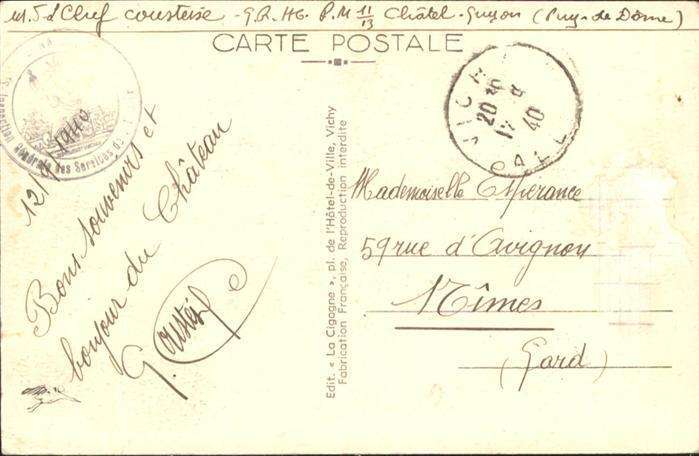 Chef G.R. HG. P.M 11/13 Châtel-Guyon (Puy-de Dôme)
CARTE POSTALE
Générale des Services de
20 H
12
40
12/
Bons souvenirs et
bonjour du Château
G.
Edit. « La Cigogne », pl. de l'Hôtel-de-Ville, Vichy
Fabrication Française, Reproduction interdite
Mademoiselle Esperance
59 rue d'Avignon
Nîmes
(Gard)